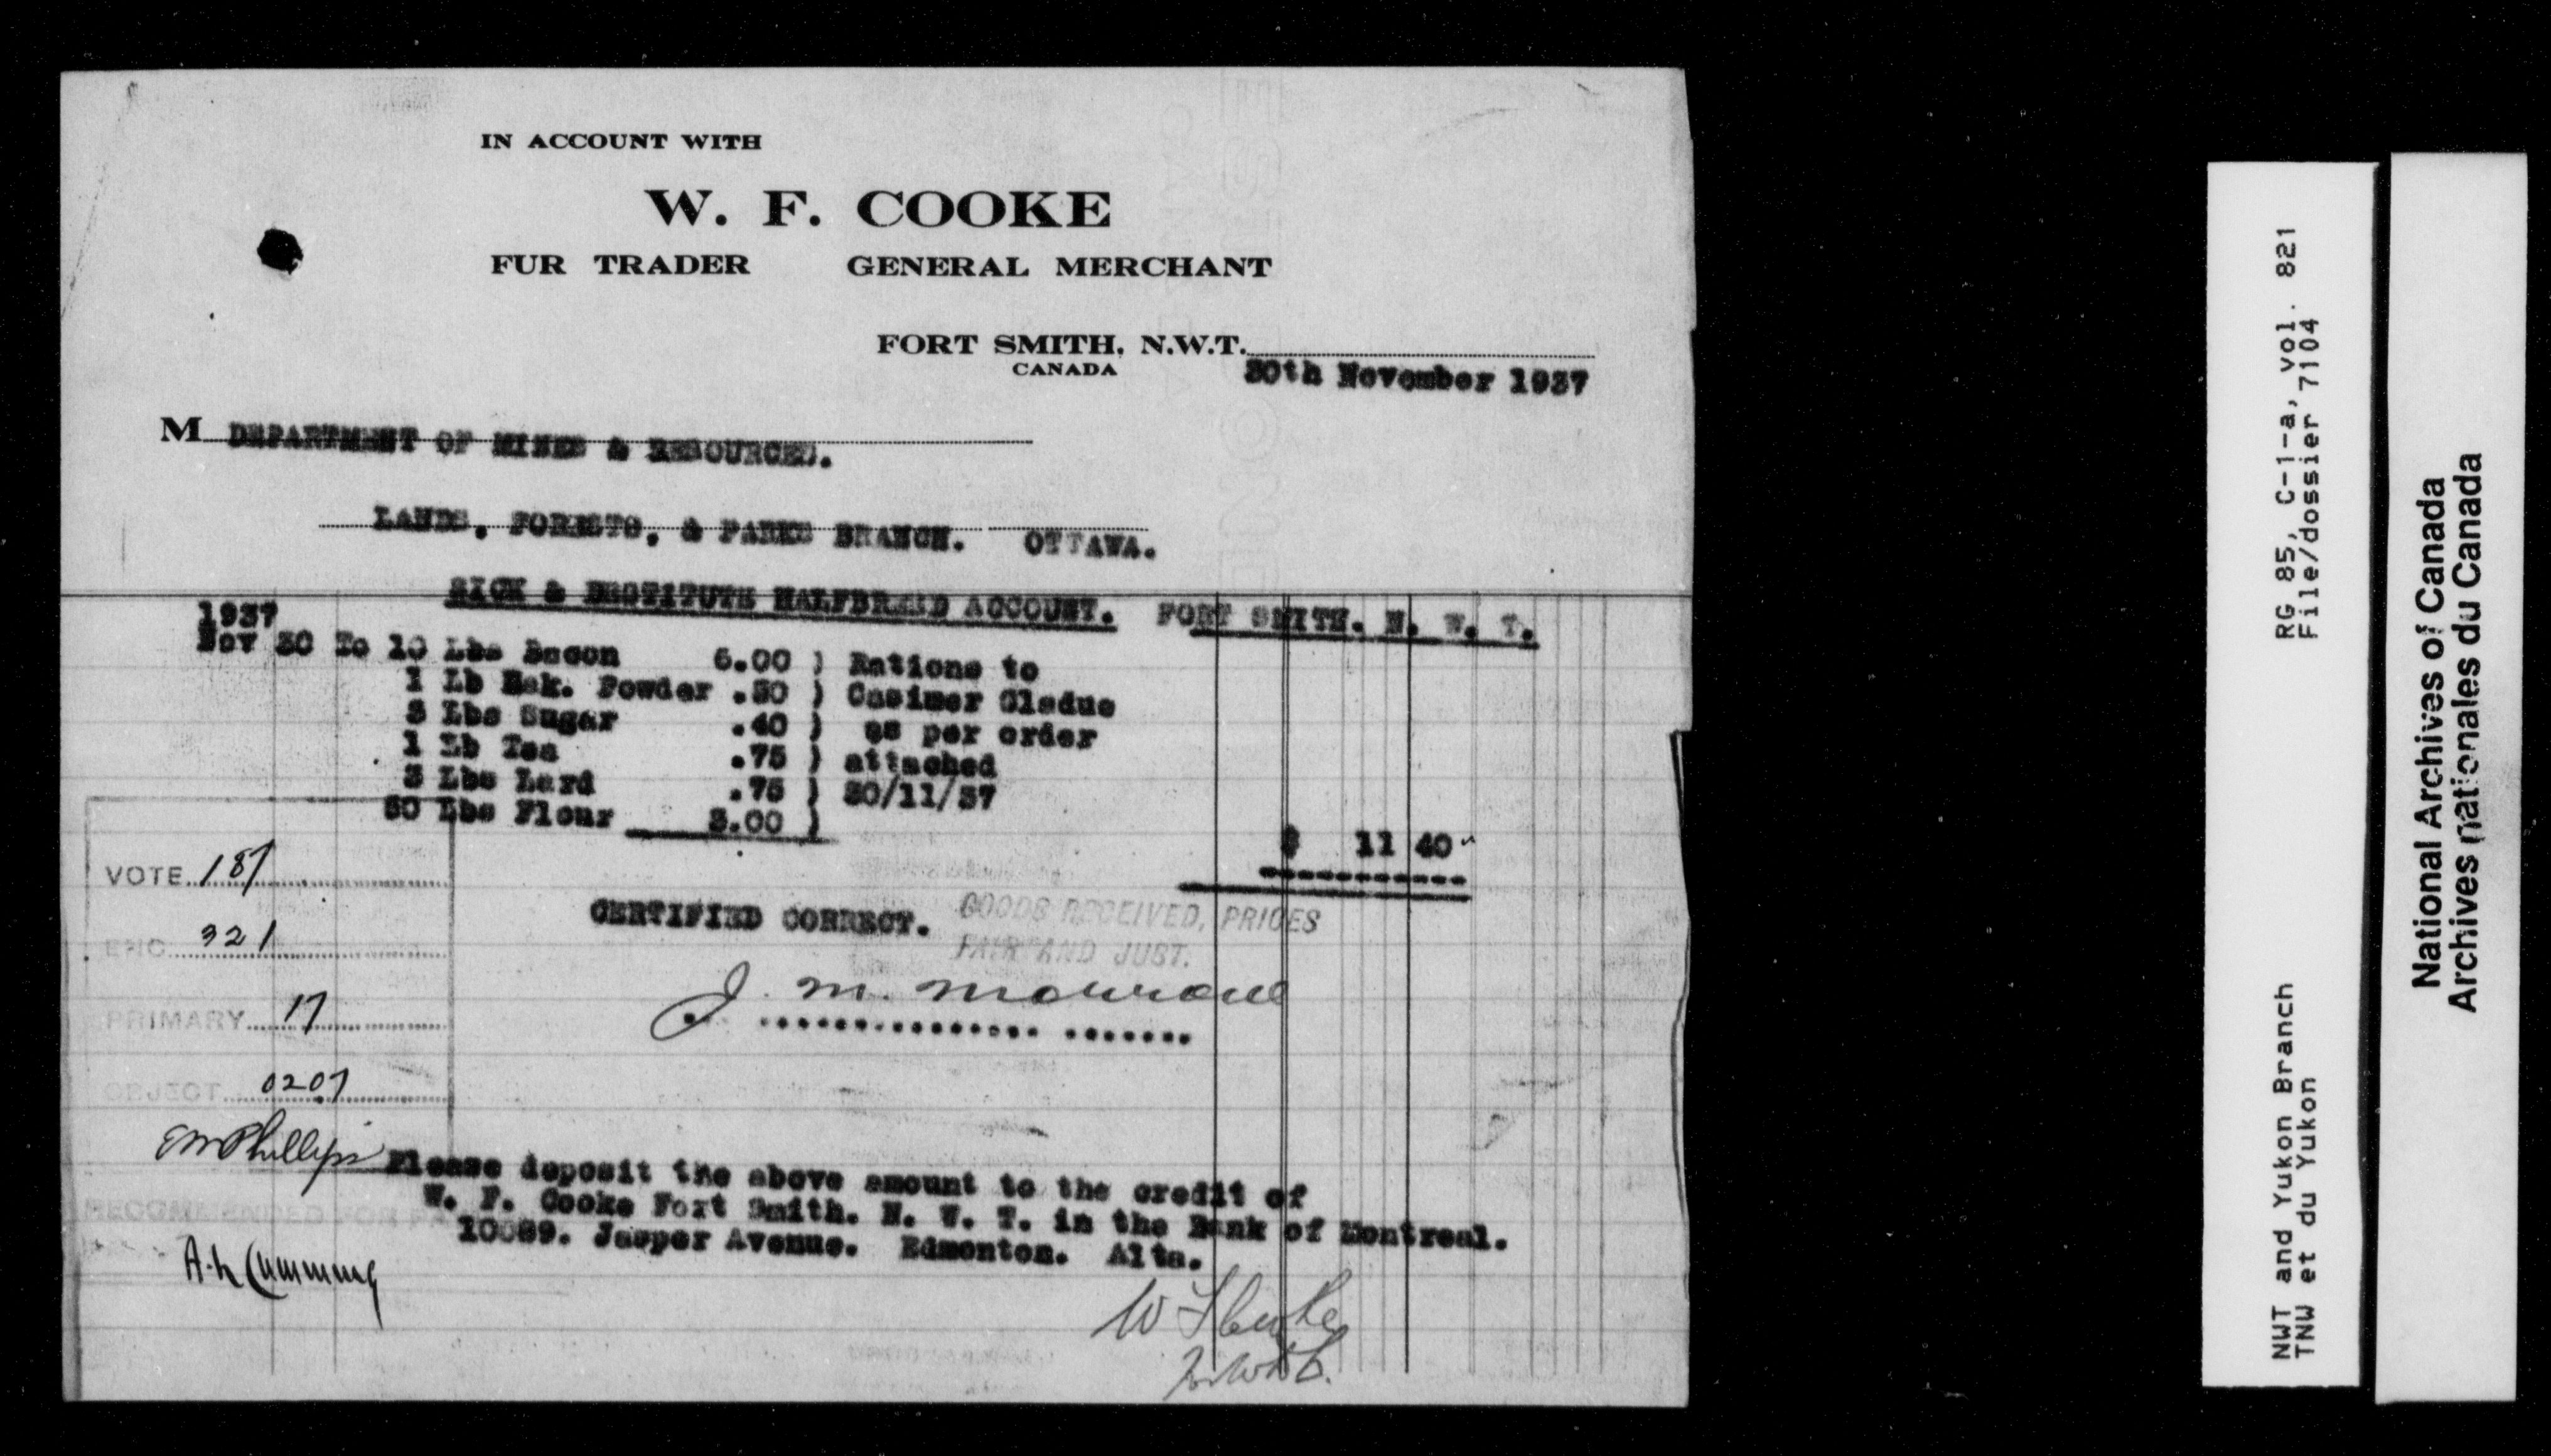 IN ACCOUNT WITH
W. F. COOKE
FUR TRADER GENERAL MERCHANT
FORT SMITH, N.W.T.
CANADA
30th November 1937
M DEPARTMENT OF MINES & RESOURCES.
LANDS, FORESTS, & PARKS BRANCH. OTTAWA.
SICK & DESTITUTE HALFBREED ACCOUNT. FORT SMITH. N. W. T.
1937
Nov 30 To 10 Lbs Bacon 6.00 ) Rations to
1 Lb Bak. Powder .50 ) Casimer Gladue
3 Lbs Sugar .40 ) as per order
1 Lb Tea .75 ) attached
3 Lbs Lard .75 ) 30/11/37
50 Lbs Flour 3.00 )
$ 11 40
VOTE 187
CERTIFIED CORRECT. GOODS RECEIVED, PRICES
FAIR AND JUST.
ENC. 321
J. M.
PRIMARY 17
OBJECT 0207
EM Phillips
Please deposit the above amount to the credit of
W. F. Cooke Fort Smith. N. W. T. in the Bank of Montreal.
10089. Jasper Avenue. Edmonton. Alta.
RECOMMENDED FOR
A. L Cumming
W F Cooke
National Archives of Canada
Archives nationales du Canada
RG 85, C-1-a, vol. 821
File/dossier 7104
NWT and Yukon Branch
TNW et du Yukon